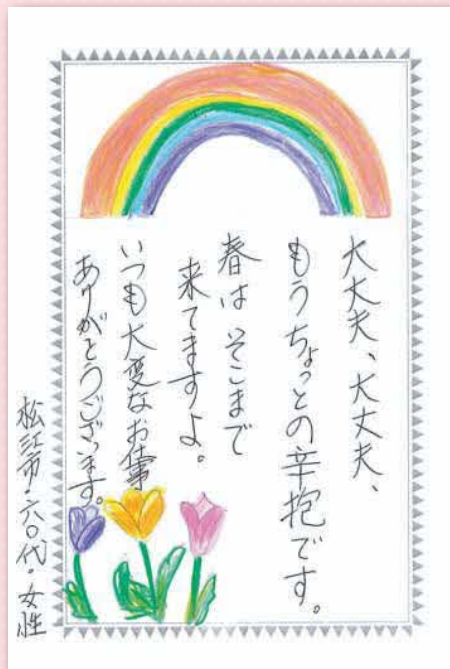 大丈夫、大丈夫、
もうちょっとの辛抱です。
春は そこまで
来てますよ。
いつも大変なお仕事
ありがとうございます。
松江市・六〇代・女性